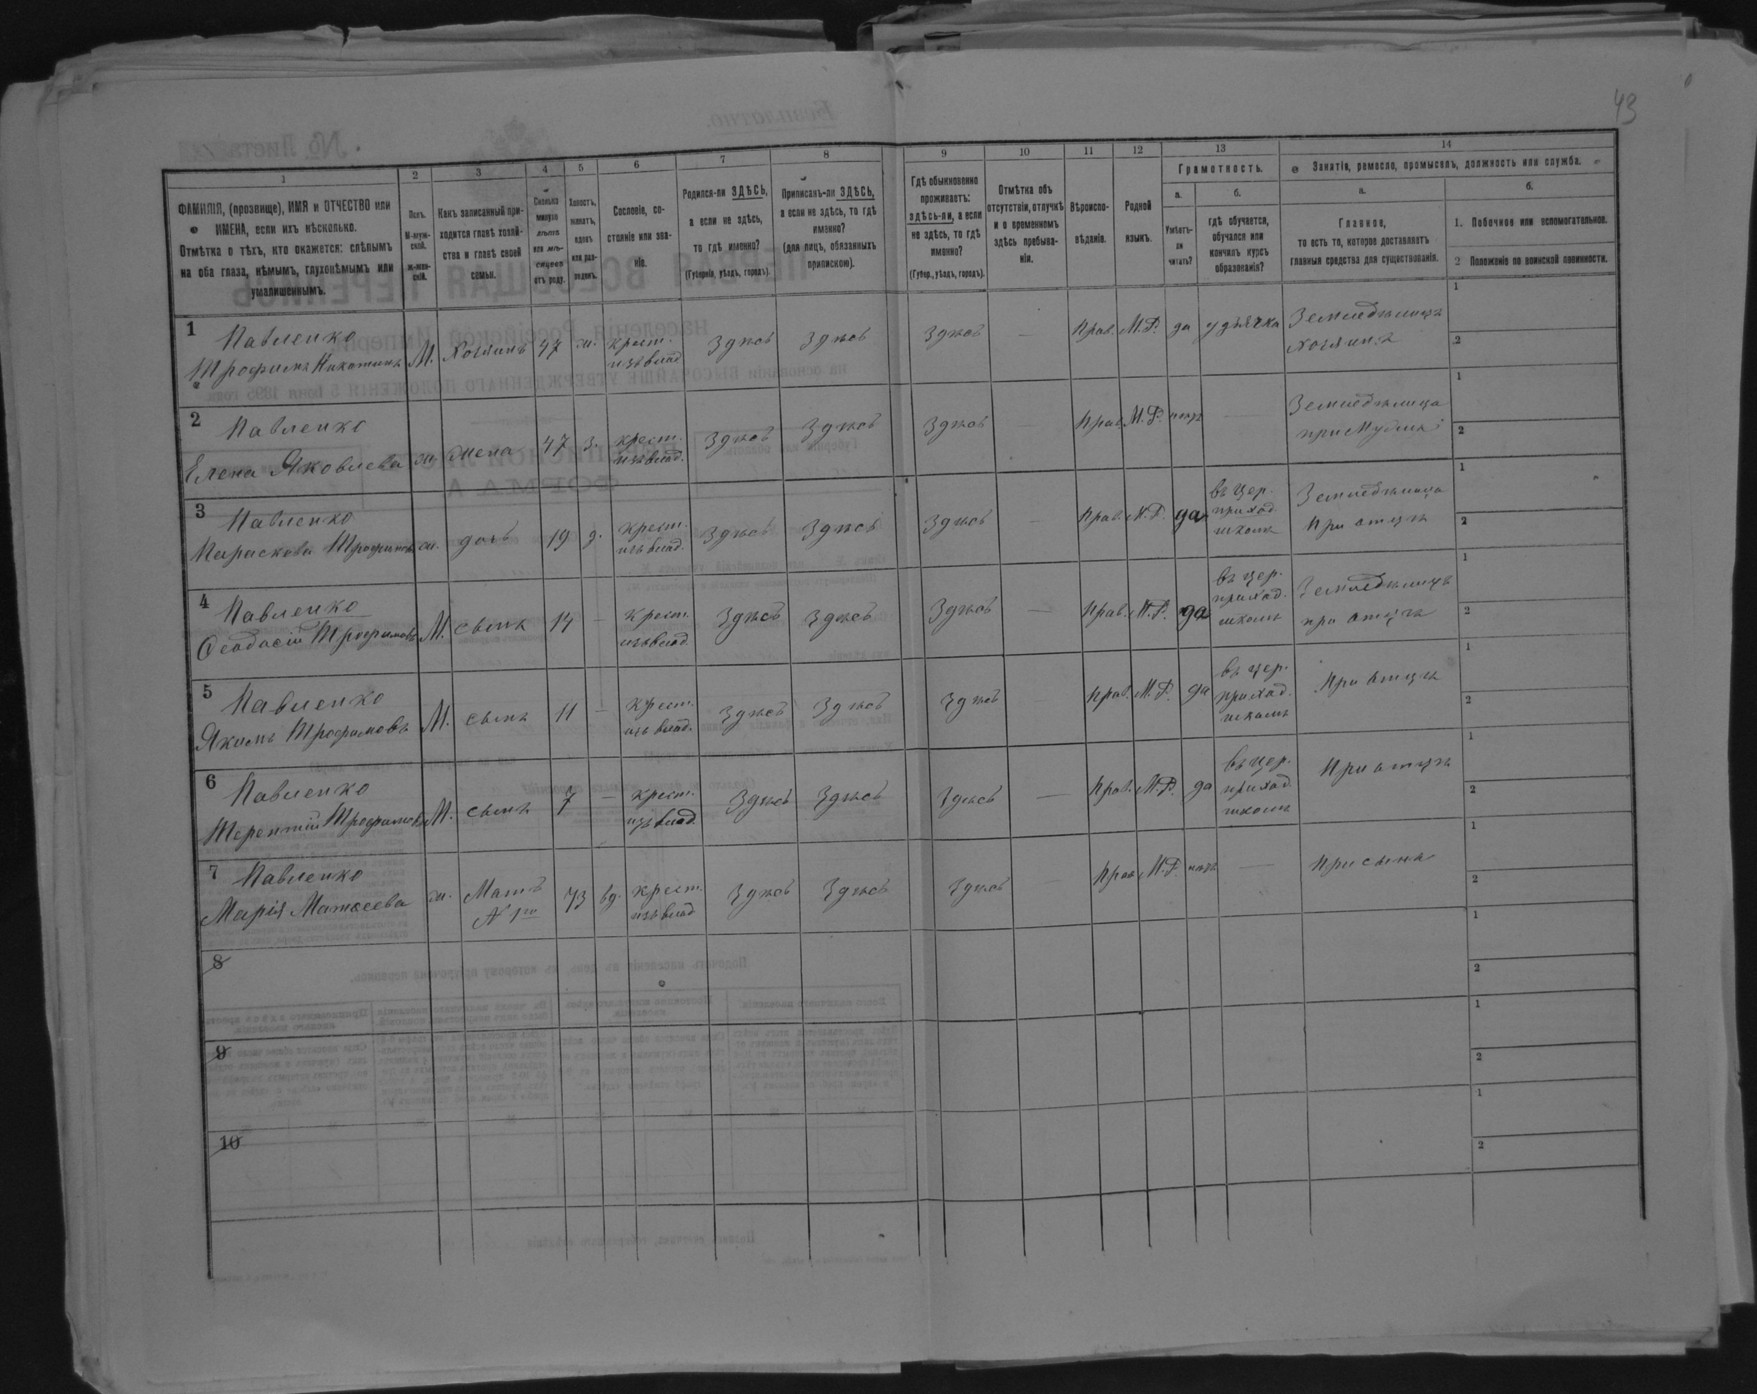 43
1
2
3
4
5
6
7
8
9
10
11
12
13
14
ФАМИЛІЯ, (прозвище), ИМЯ и ОТЧЕСТВО или
ИМЕНА, если ихъ нѣсколько.
Отмѣтка о тѣхъ, кто окажется: слѣпымъ
на оба глаза, нѣмымъ, глухонѣмымъ или
умалишеннымъ.
Полъ.
М-муж-
ской.
Ж-жен-
скій.
Какъ записанный при-
ходится главѣ хозяй-
ства и главѣ своей
семьи.
Сколько
минуло
лѣтъ
или мѣ-
сяцевъ
отъ роду.
Холостъ,
женатъ,
вдовъ
или раз-
веденъ.
Сословіе, со-
стояніе или зва-
ніе.
Родился-ли ЗДѢСЬ,
а если не здѣсь,
то гдѣ именно?
(Губернія, уѣздъ, городъ).
Приписанъ-ли ЗДѢСЬ,
а если не здѣсь, то гдѣ
именно?
(для лицъ, обязанныхъ
припискою).
Гдѣ обыкновенно
проживаетъ:
здѣсь-ли, а если
не здѣсь, то гдѣ
именно?
(Губер., уѣздъ, городъ).
Отмѣтка объ
отсутствіи, отлучкѣ
и о временномъ
здѣсь пребыва-
ніи.
Вѣроиспо-
вѣданіе.
Родной
языкъ.
Грамотность.
а.
Умѣетъ-
ли
читать?
б.
гдѣ обучается,
обучался или
кончилъ курсъ
образованія?
Занятіе, ремесло, промыселъ, должность или служба.
а.
Главное,
то есть то, которое доставляетъ
главныя средства для существованія.
б.
1. Побочное или вспомогательное.
2 Положеніе по воинской повинности.
1 Павленко
Трофимъ Никитинъ М. Хозяинъ 47 ж. крест. изъ влад. Здѣсь Здѣсь Здѣсь — Прав. М.Р. да у дьячка Земледѣлецъ хозяинъ 1 2
2 Павленко
Елена Яковлева ж. жена 47 з. крест. изъ влад. Здѣсь Здѣсь Здѣсь — Прав. М.Р. нетъ — Земледѣлица при мужѣ 1 2
3 Павленко
Параскева ж. дочь 19 д. крест. изъ влад. Здѣсь Здѣсь Здѣсь — Прав. М.Р. да въ цер. приход. школѣ Земледѣлица при отцѣ 1 2
4 Павленко
Ѳеодосій Трофимовъ М. сынъ 14 — крест. изъ влад. Здѣсь Здѣсь Здѣсь — Прав. М.Р. да въ цер. приход. школѣ Земледѣлецъ при отцѣ 1 2
5 Павленко
Якимъ Трофимовъ М. сынъ 11 — крест. изъ влад. Здѣсь Здѣсь Здѣсь Прав. М.Р. да въ цер. приход. школѣ При отцѣ 1 2
6 Павленко
Терентій Трофимовъ М. сынъ 7 — крест. изъ влад. Здѣсь Здѣсь Здѣсь — Прав. М.Р. да въ цер. приход. школѣ При отцѣ 1 2
7 Павленко
Марія Матвеева ж. Мать N 1го 73 вд. крест. изъ влад. Здѣсь Здѣсь Здѣсь — Прав. М.Р. нетъ — При сынѣ 1 2
8 1 2
9 1 2
10 1 2